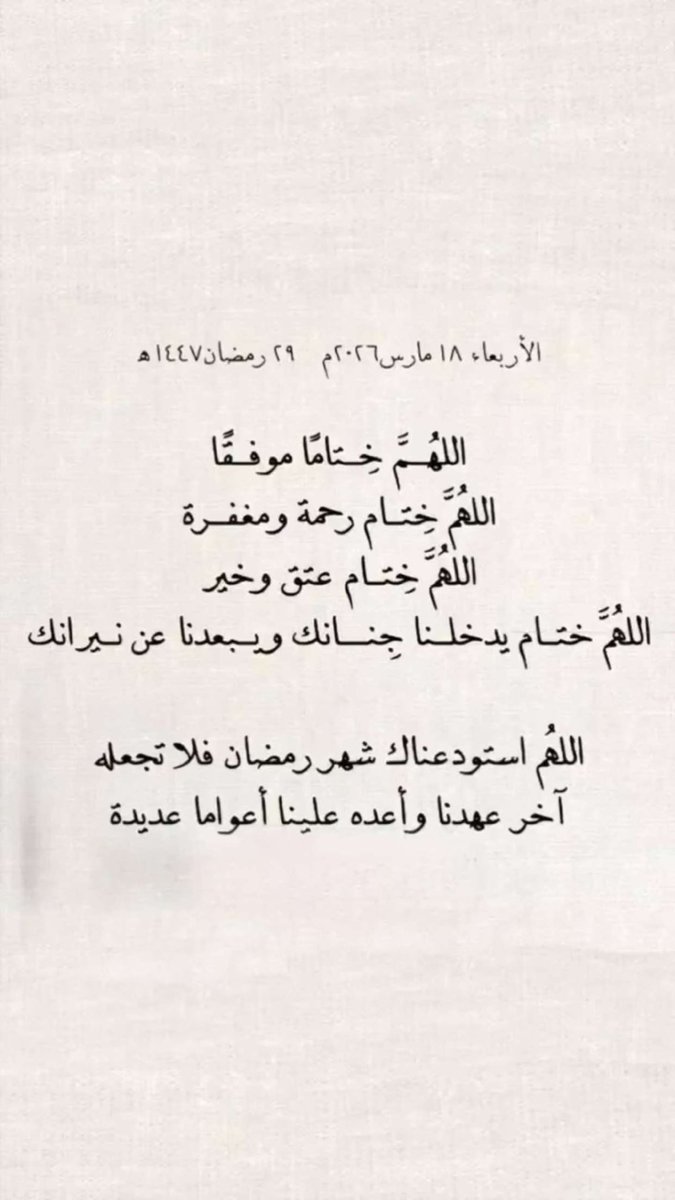 الأربعاء ١٨ مارس٢٠٢٦م ٢٩ رمضان١٤٤٧ه
اللهُــمَّ خِــتامًا موفــقًا
اللهُمَّ خِتــام رحمة ومغفــرة
اللهُمَّ خِتــام عتق وخير
اللهُمَّ ختــام يدخلــنا جِنــانك ويــبعدنا عن نــيرانك
اللهُم استودعناك شهر رمضان فلا تجعله
آخر عهدنا وأعده علينا أعواما عديدة